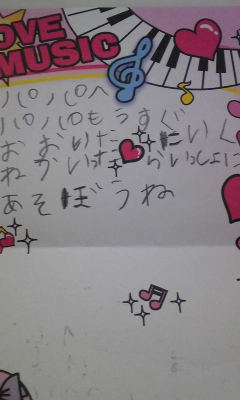 OVE
MUSIC
パパへ
パパもうすぐ
おおいたにいく
ねがいったらいっしょに
あそぼうね